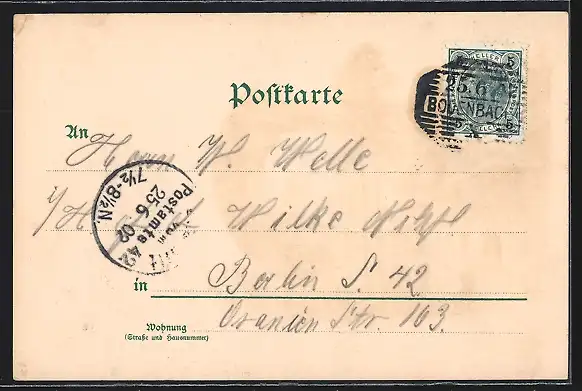 Postkarte
HELLER
5 5
25.6
BODENBACH
5 5
An Herrn W. Welle
Wilke
7½-8½N
25 6 02
Postamte 42
vom
in Berlin S. 42
Wohnung
(Straße und Hausnummer)
Oranien Str. 103.